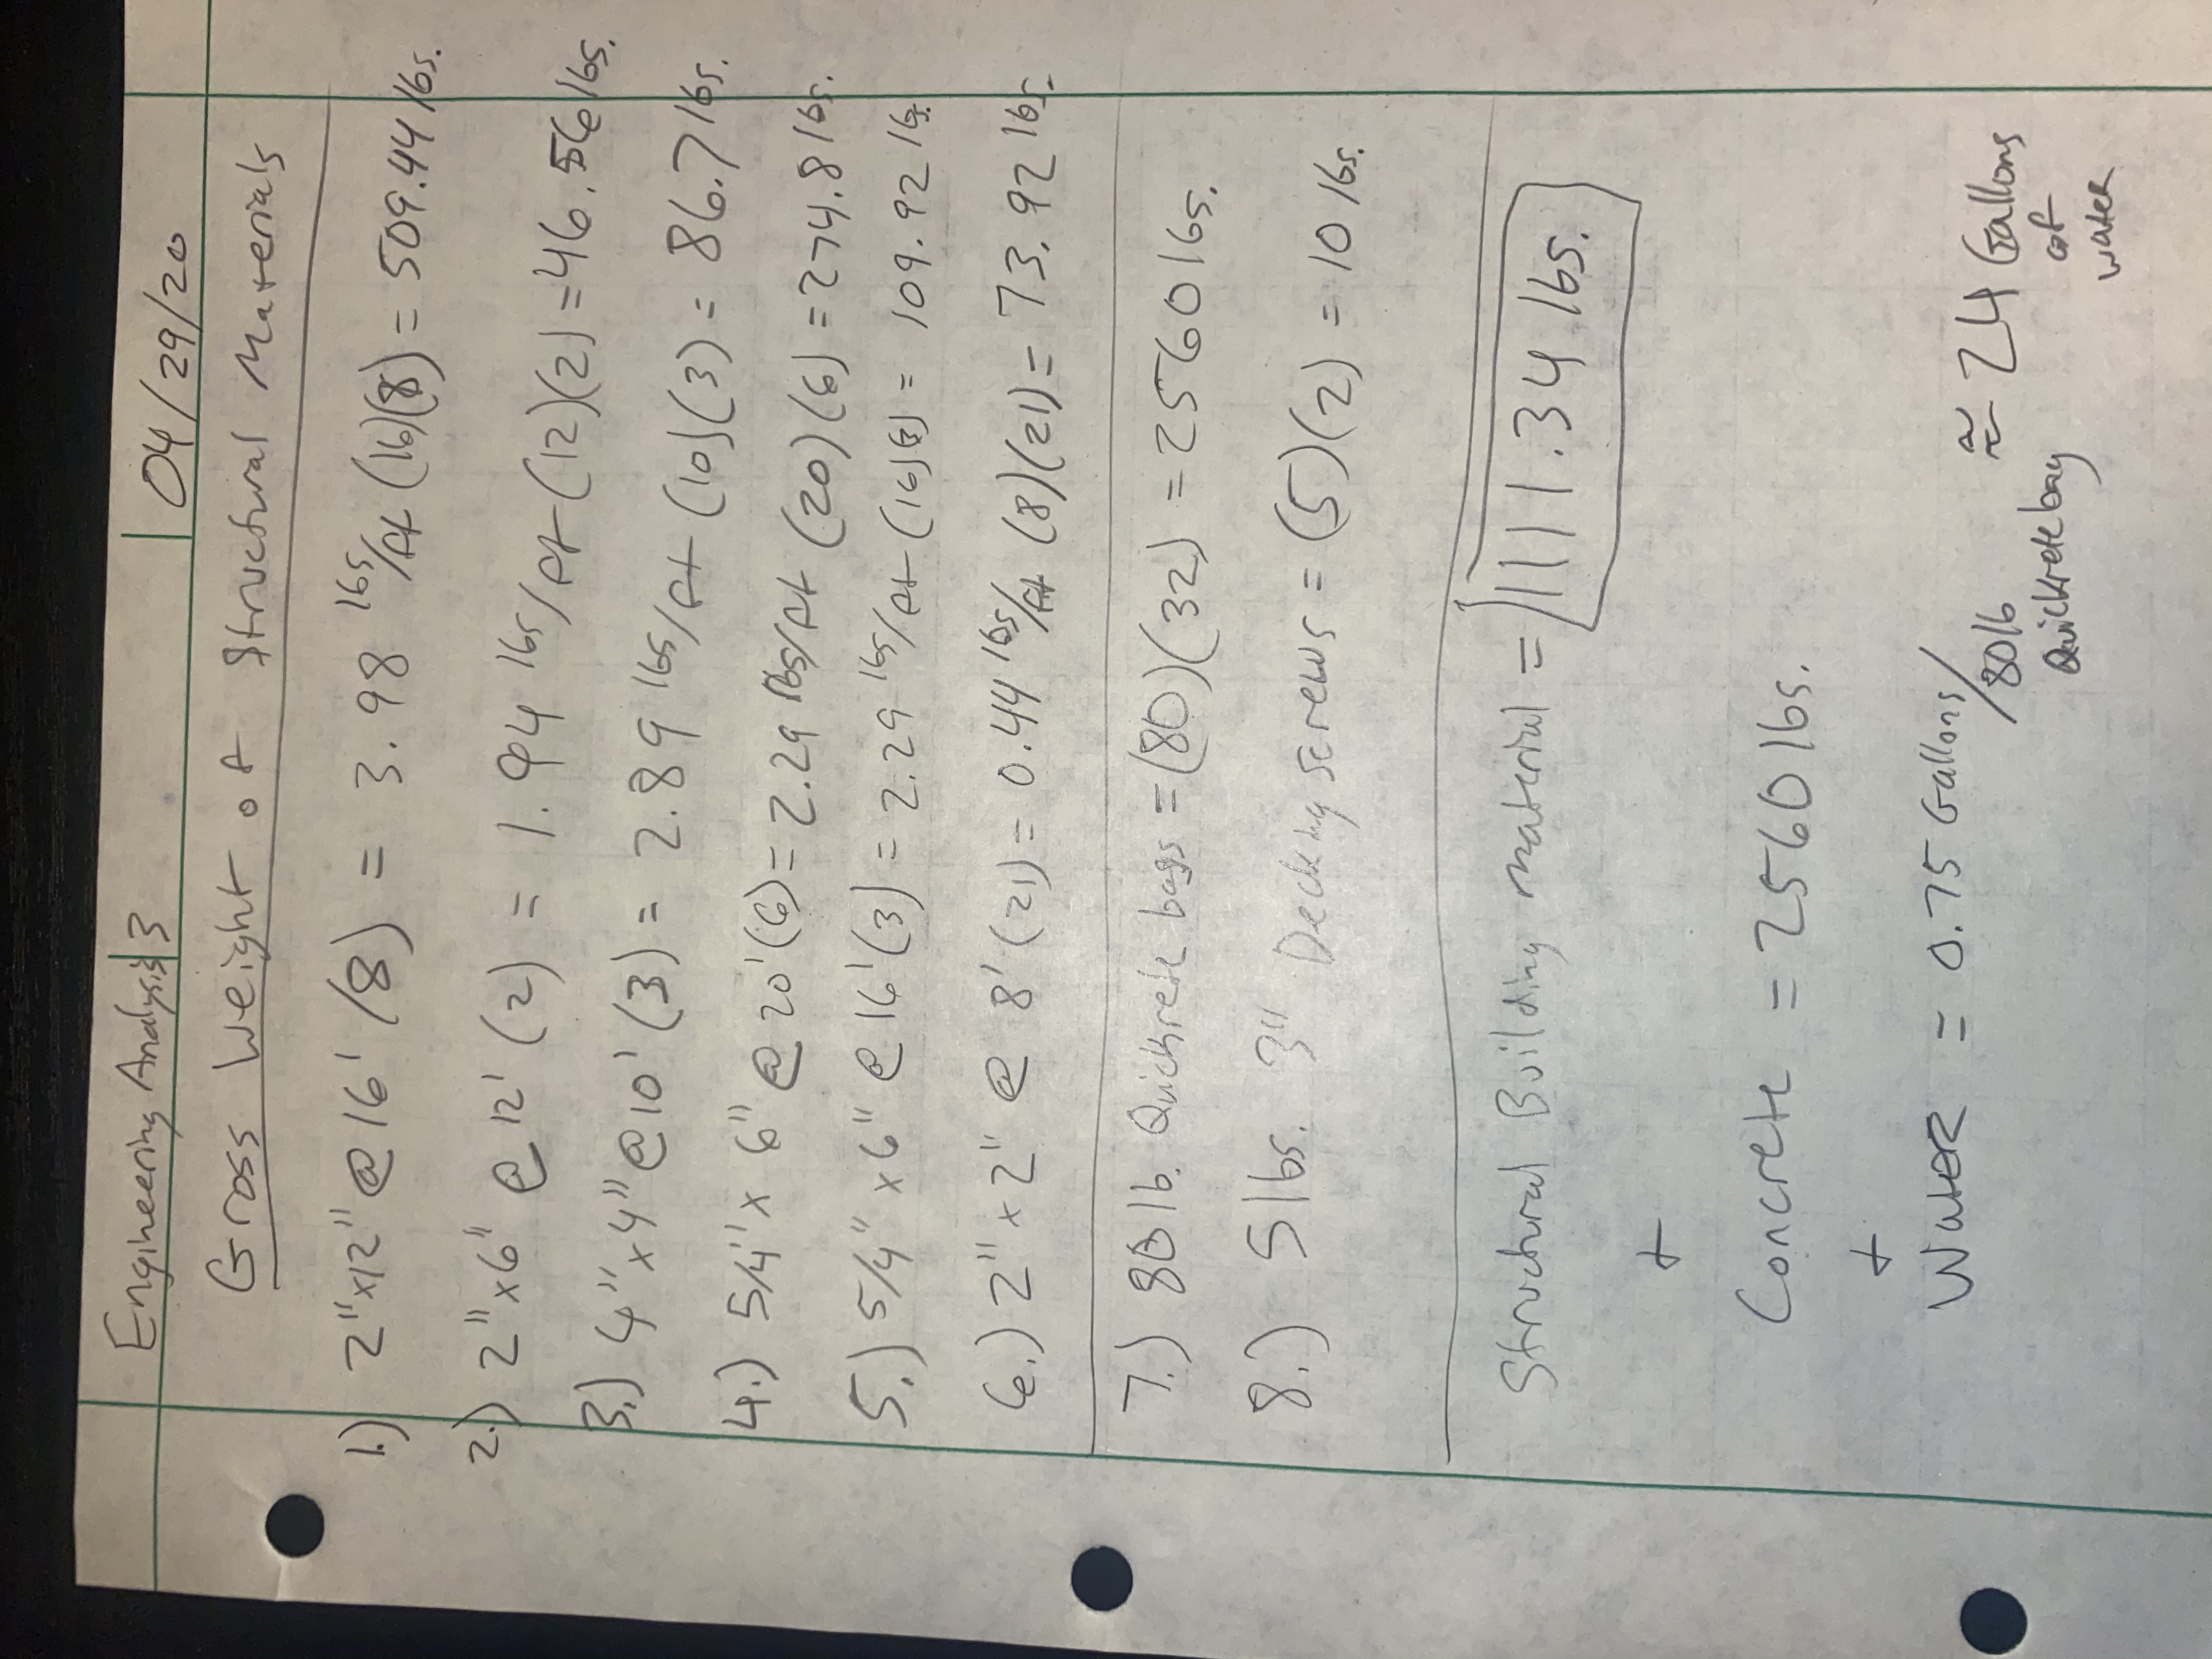 Engineering Analysis 3 04/29/20
Gross Weight of Structural Materials
1.) 2"x12" @ 16' (8) = 3.98 lbs/ft (16)(8) = 509.44 lbs.
2.) 2"x6" @ 12' (2) = 1.94 lbs/ft (12)(2) = 46.56 lbs.
3.) 4"x4" @ 10' (3) = 2.89 lbs/ft (10)(3) = 86.7 lbs.
4.) 5/4" x 6" @ 20' (6) = 2.29 lbs/ft (20)(6) = 274.8 lbs.
5.) 5/4" x6" @ 16' (3) = 2.29 lbs/ft (16)(3) = 109.92 lbs.
6.) 2" x 2" @ 8' (21) = 0.44 lbs/ft (8)(21) = 73.92 lbs.
7.) 80 lb. Quickrete bags = (80)(32) = 2560 lbs.
8.) 5 lbs. 3" Decking screws = (5)(2) = 10 lbs.
Structural Building material = 1111.34 lbs.
+
Concrete = 2560 lbs.
+
Water = 0.75 Gallons/80 lb Quickrete bag ≈ 24 Gallons of water